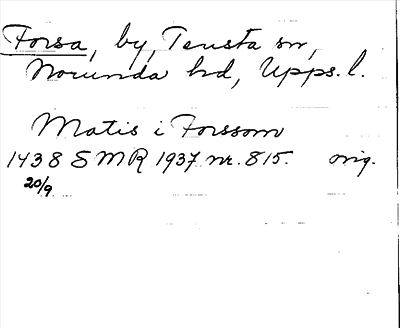 Forsa, by, Tensta sn,
Norunda hd, Upps. l.
Matis i Forssom
1438 SMR 1937 nr. 815. orig.
20/9